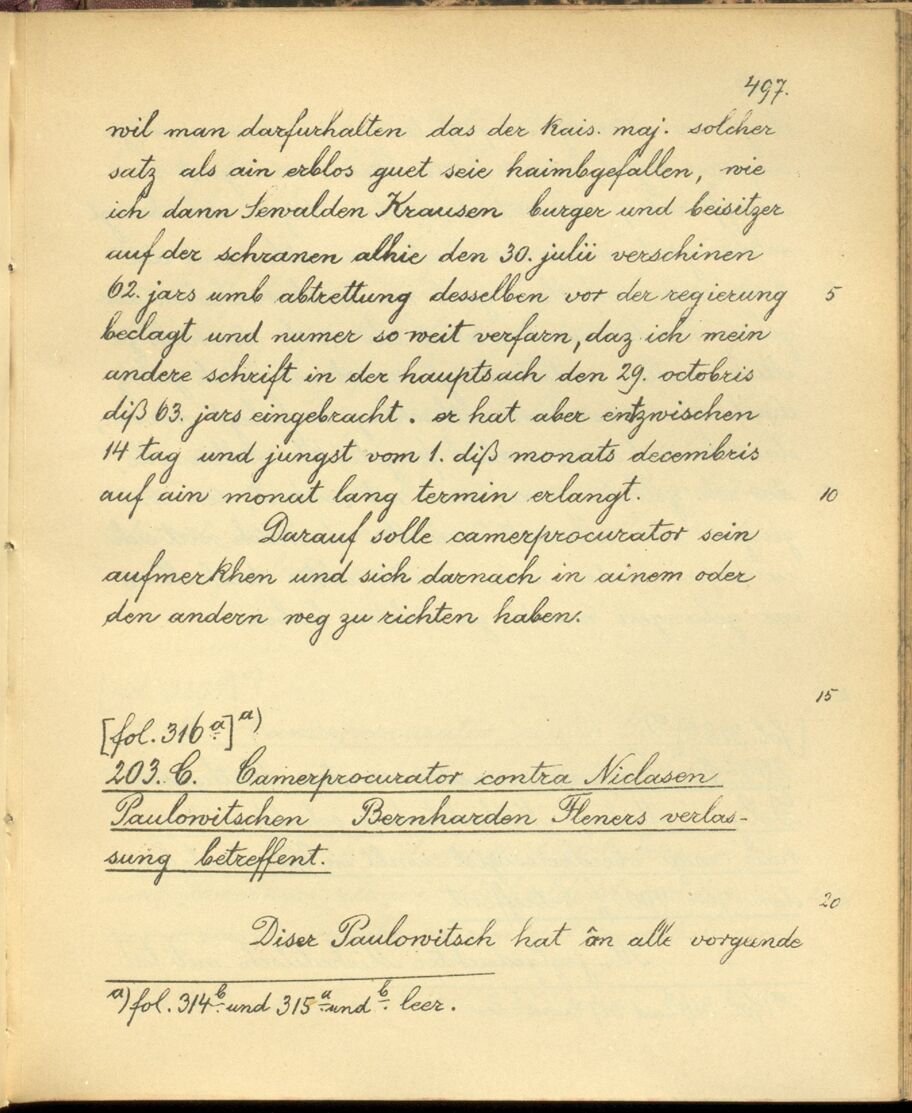 497.
wil man darfurhalten das der kais. maj. solcher
satz als ain erblos guet seie haimbgefallen, wie
ich dann Sewalden Krausen burger und beisitzer
auf der schranen alhie den 30. julii verschinen
62. jars umb abtrettung desselben vor der regierung 5
beclagt und numer so weit verfarn, daz ich mein
andere schrift in der hauptsach den 29. octobris
diß 63. jars eingebracht. er hat aber entzwischen
14 tag und jungst vom 1. diß monats decembris
auf ain monat lang termin erlangt. 10
Darauf solle camerprocurator sein
aufmerkhen und sich darnach in ainem oder
den andern weg zu richten haben.
15
[fol. 316a]a)
203. C. Camerprocurator contra Niclasen
Paulowitschen Bernharden Fleners verlas-
sung betreffent.
20
Diser Paulowitsch hat ân alle vorgeende
a) fol. 314b und 315a und b leer.